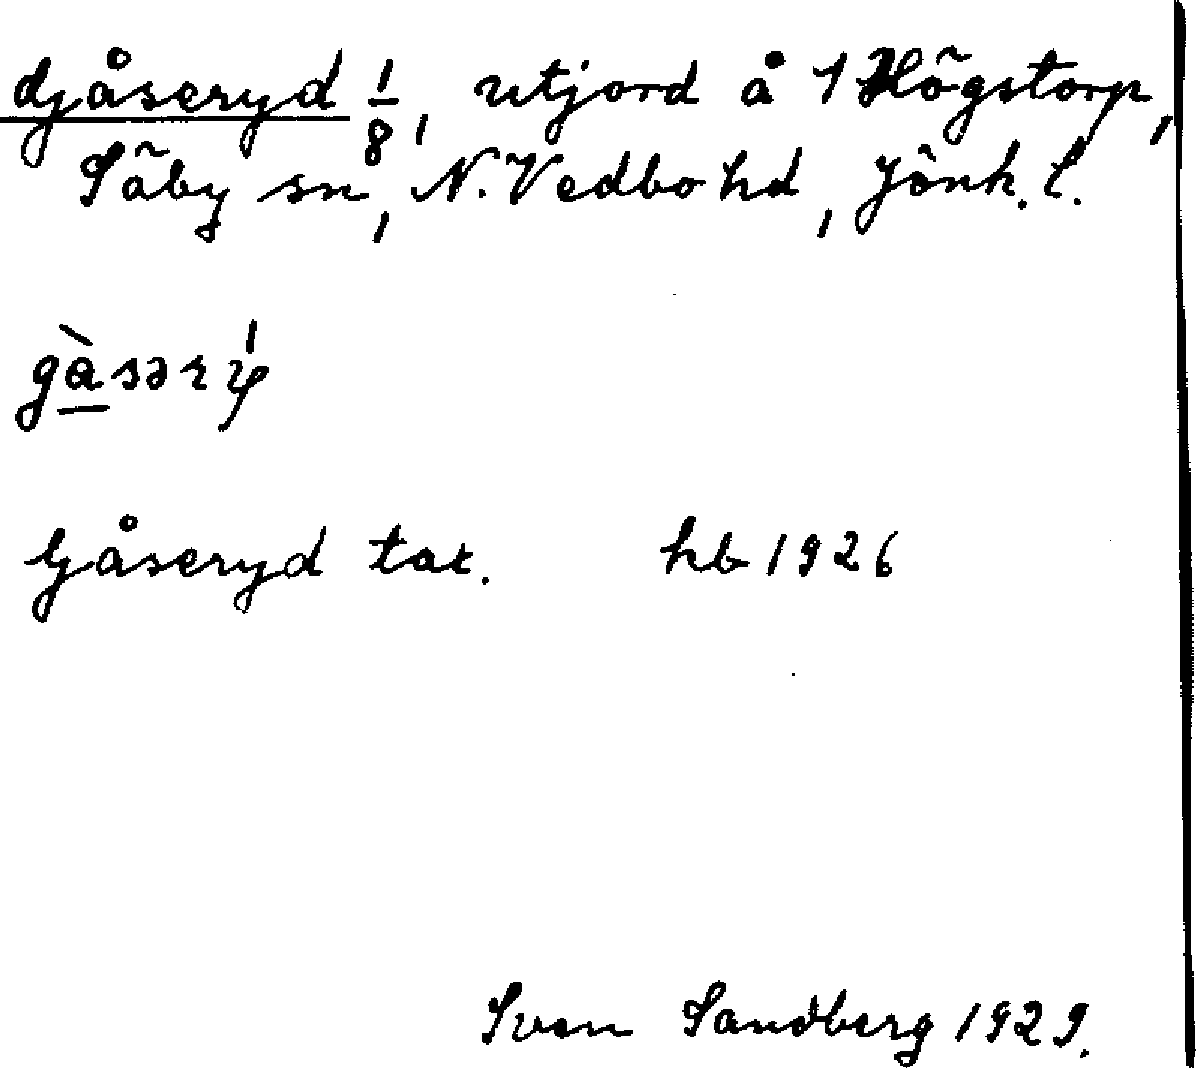 Gåseryd 1/8, utjord å 1 Högstorp,
Säby sn, N. Vedbo hd, Jönk. l.
Gåseryd tax. hb 1926
Sven Sandberg 1929.